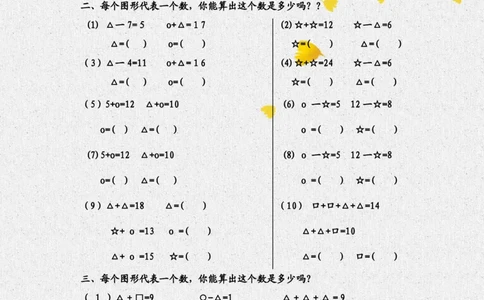 二、每个图形代表一个数，你能算出这个数是多少吗？？
(1) △一 7= 5 o+△= 1 7
△=( ) o=( )
(2) ☆+☆=12 ☆一△=6
☆=( ) △= ( )
( 3 ) △一 4=11 o+△= 1 6
△=( ) o=( )
(4) ☆+☆=24 ☆一△=6
☆=( ) △=( )
( 5 ) 5+o=12 △+o=10
o=( ) △=( )
(6) o 一☆=5 12 一☆=8
o =( ) ☆=( )
(7) 5+o=12 △+o=10
o=( ) △=( )
(8) o 一☆=5 12 一☆=8
o =( ) ☆=( )
( 9 ) △+△=18 △=( )
☆+ o =13 o =( )
△+ o =15 ☆=( )
( 1 0 ) □+□+△+△=14
△+△+□=10
△=( ) □=( )
三、每个图形代表一个数，你能算出这个数是多少吗？
( 1 ) △ + □=9 ○−△=1 △ + △ + △ = 9